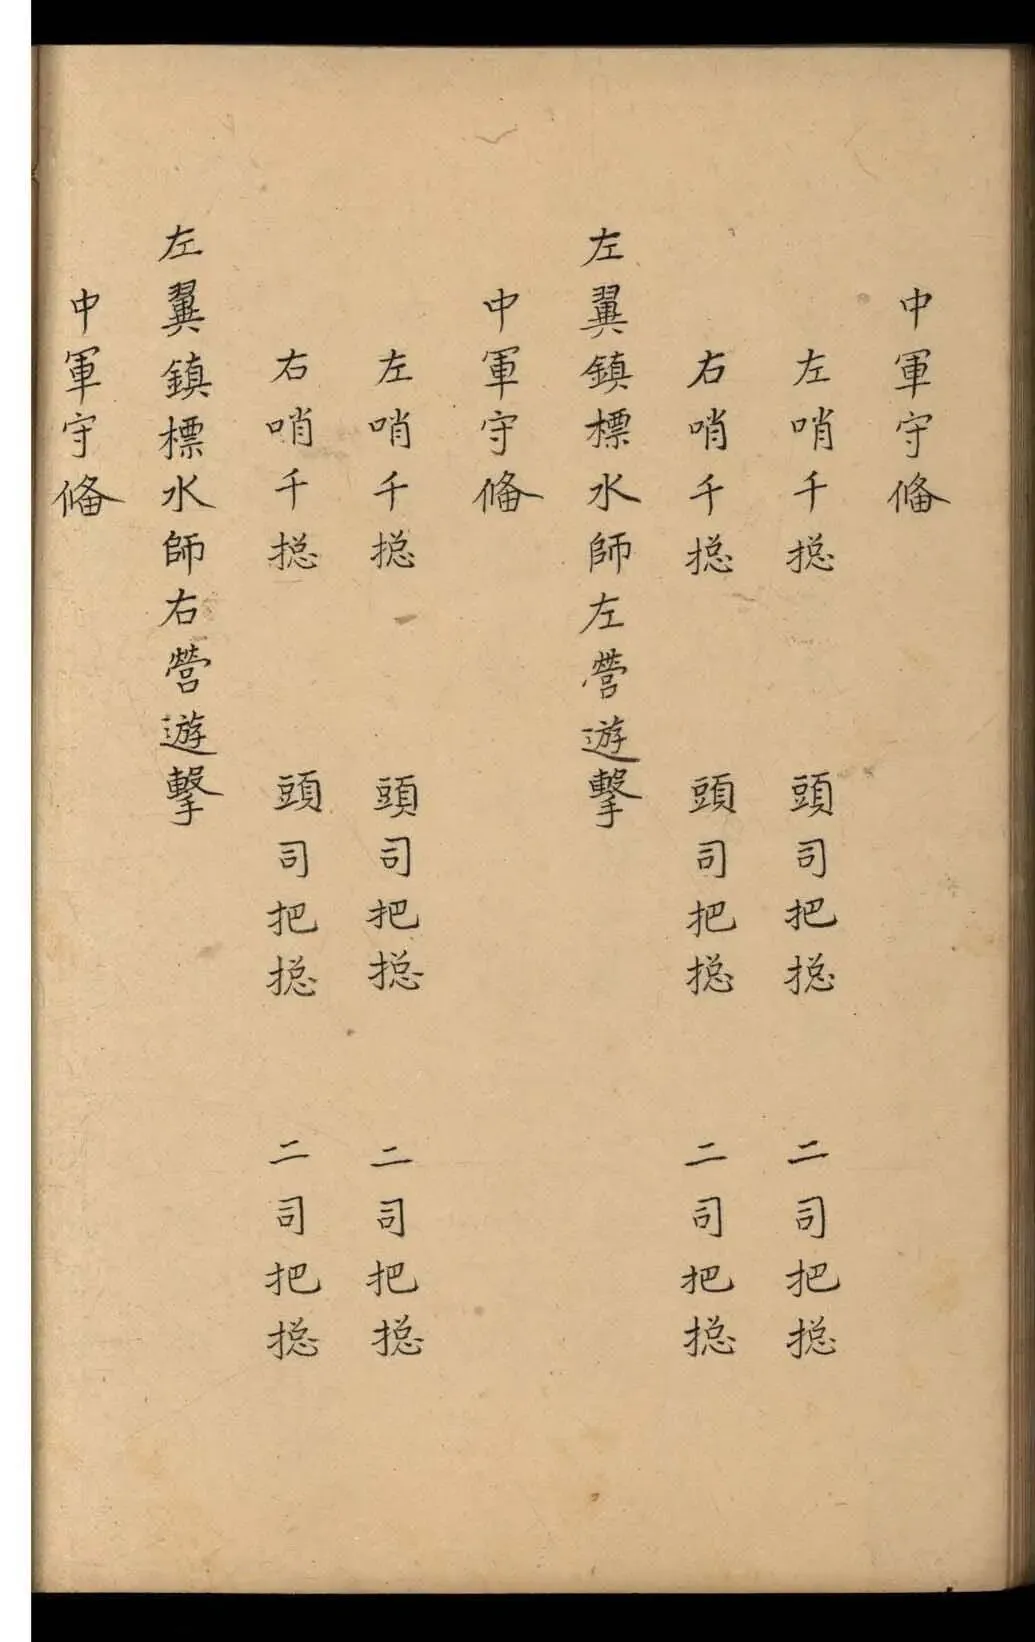 中軍守僃
左哨千摠　頭司把摠　二司把摠
右哨千摠　頭司把摠　二司把摠
左翼鎮標水師左營遊擊
中軍守僃
左哨千摠　頭司把摠　二司把摠
右哨千摠　頭司把摠　二司把摠
左翼鎮標水師右營遊擊
中軍守僃